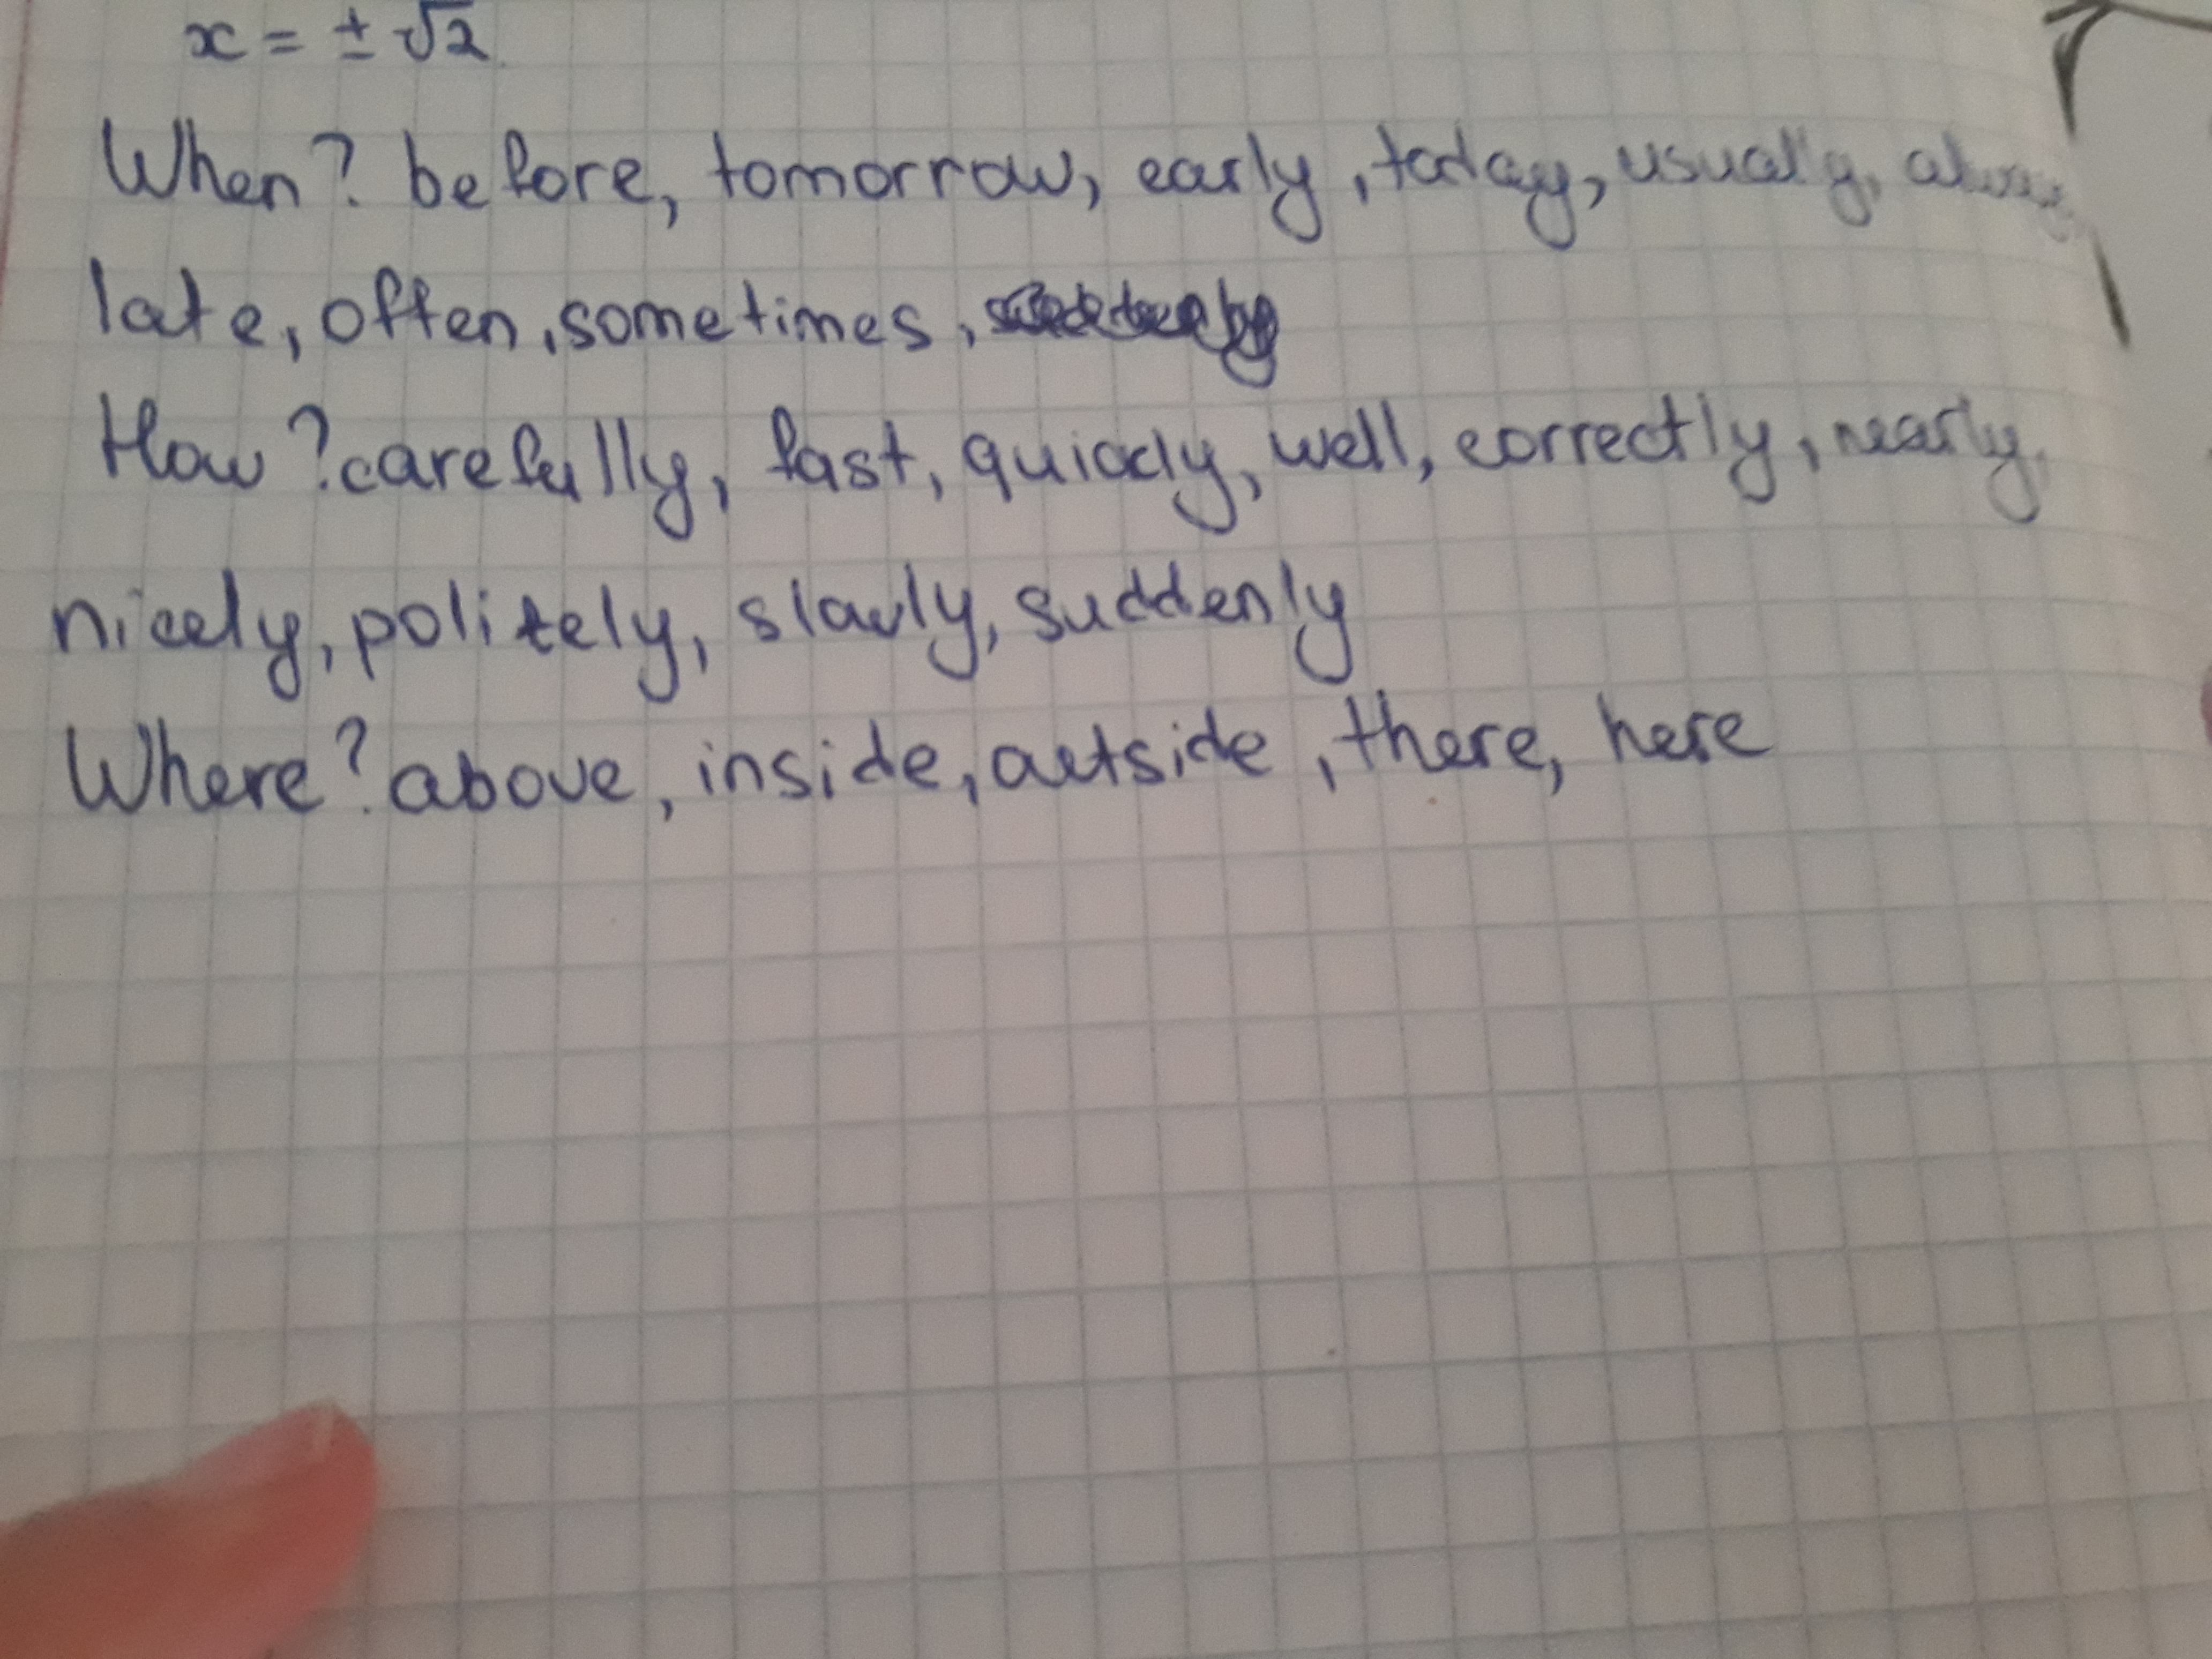 x = ± √2
When? before, tomorrow, early, today, usually,
late, often, sometimes,
How? carefully, fast, quickly, well, correctly, nearly,
nicely, politely, slowly, suddenly
Where? above, inside, outside, there, here